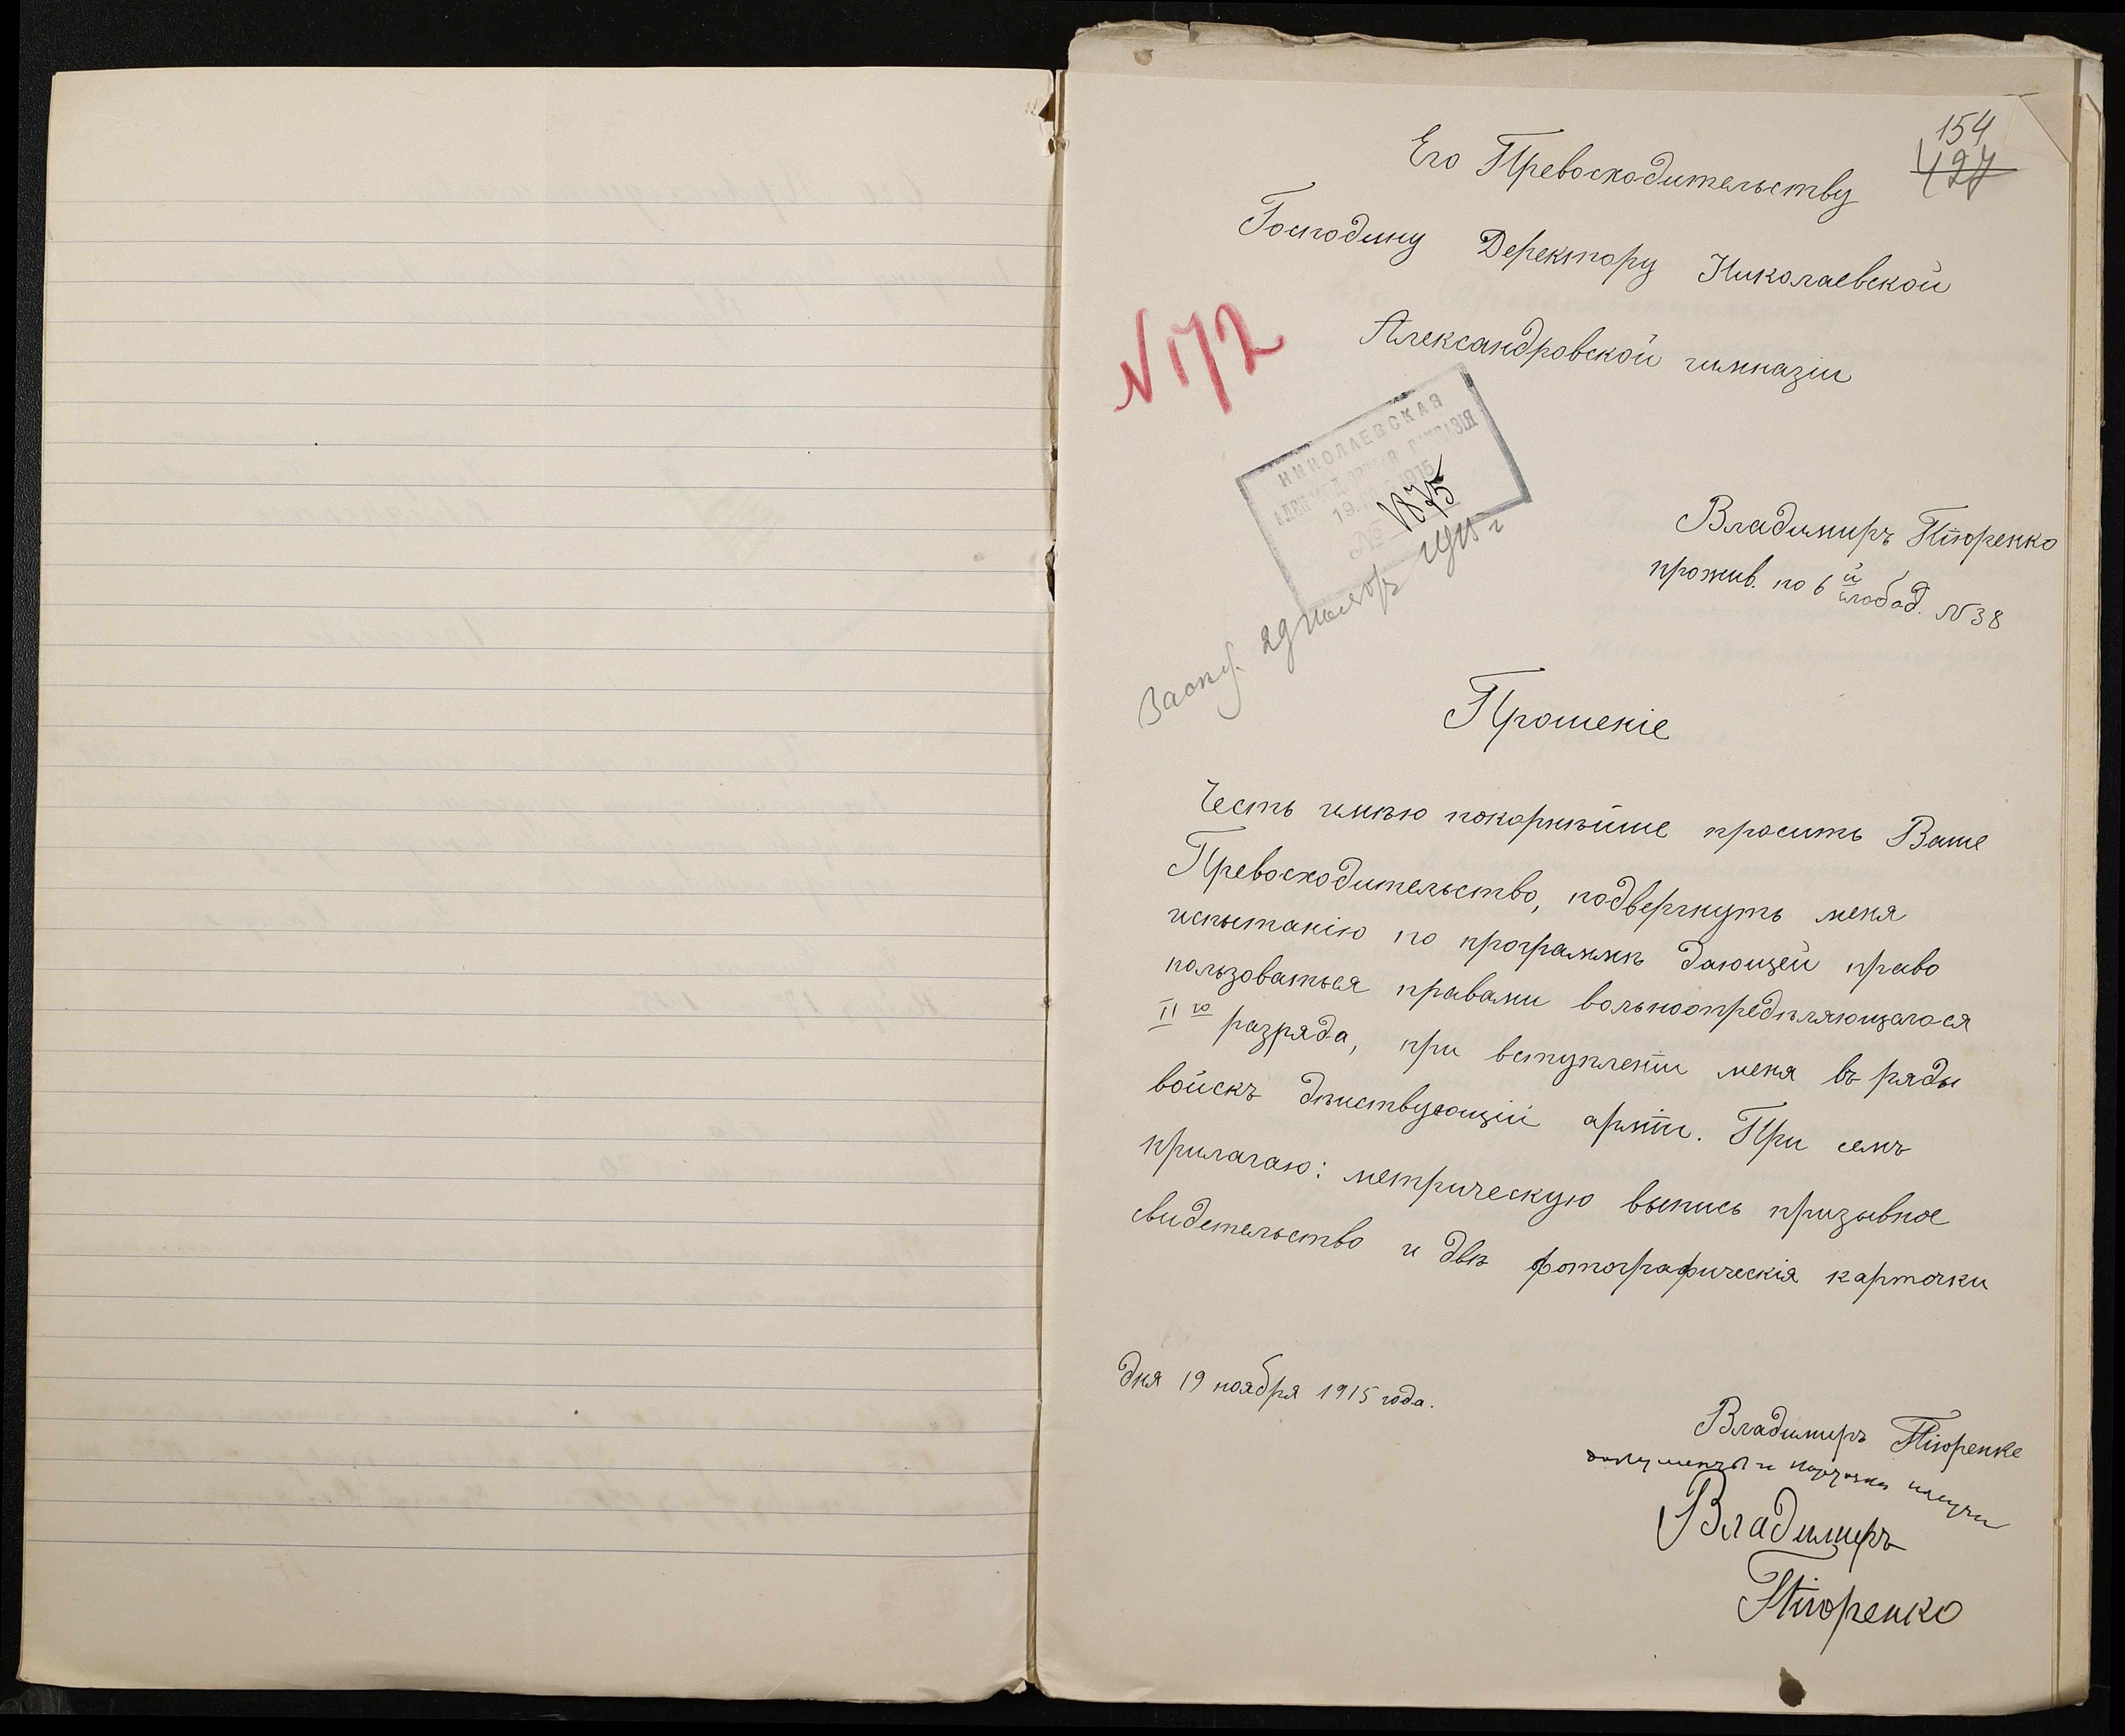 154
427
Его Превосходительству
Господину Деректору Николаевской
Александровской гимназіи
N 172
НИКОЛАЕВСКАЯ
АЛЕКСАНДРОВСКАЯ ГИМНАЗІЯ
19 1915
№ 1875
29 ноября 1915 г
Владимиръ Тюренко
прожив. по 6й слобод. N 38
Прошеніе
Честь имѣю покорнѣйше просить Ваше
Превосходительство, подвергнуть меня
испытанію по программѣ дающей право
пользоваться правами вольноопредѣляющагося
II го разряда, при вступленіи меня въ ряды
войскъ дѣиствующій арміи. При семъ
прилагаю: метрическую выпись призывное
свидетельство и двѣ фотографическія карточки
Дня 19 ноября 1915 года.
Владимиръ
документы и карточки получи
Владимиръ